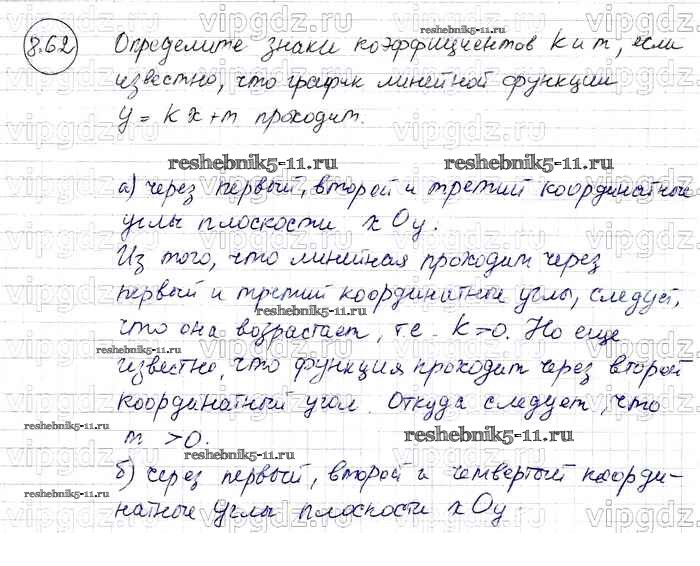 8.62 Определите знаки коэффициентов k и m, если
известно, что график линейной функции
y = kx+m проходит.
reshebnik5-11.ru reshebnik5-11.ru
а) через первый, второй и третий координатные
углы плоскости xOy.
Из того, что линейная проходит через
первый и третий координатные углы, следует,
reshebnik5-11.ru
что она возрастает, т.е. k>0. Но еще
reshebnik5-11.ru
известно, что функция проходит через второй
координатный угол. Откуда следует, что
reshebnik5-11.ru
m >0.
reshebnik5-11.ru
б) через первый, второй и четвертый коорди-
reshebnik5-11.ru
натные углы плоскости xOy.
vipgdz.ru